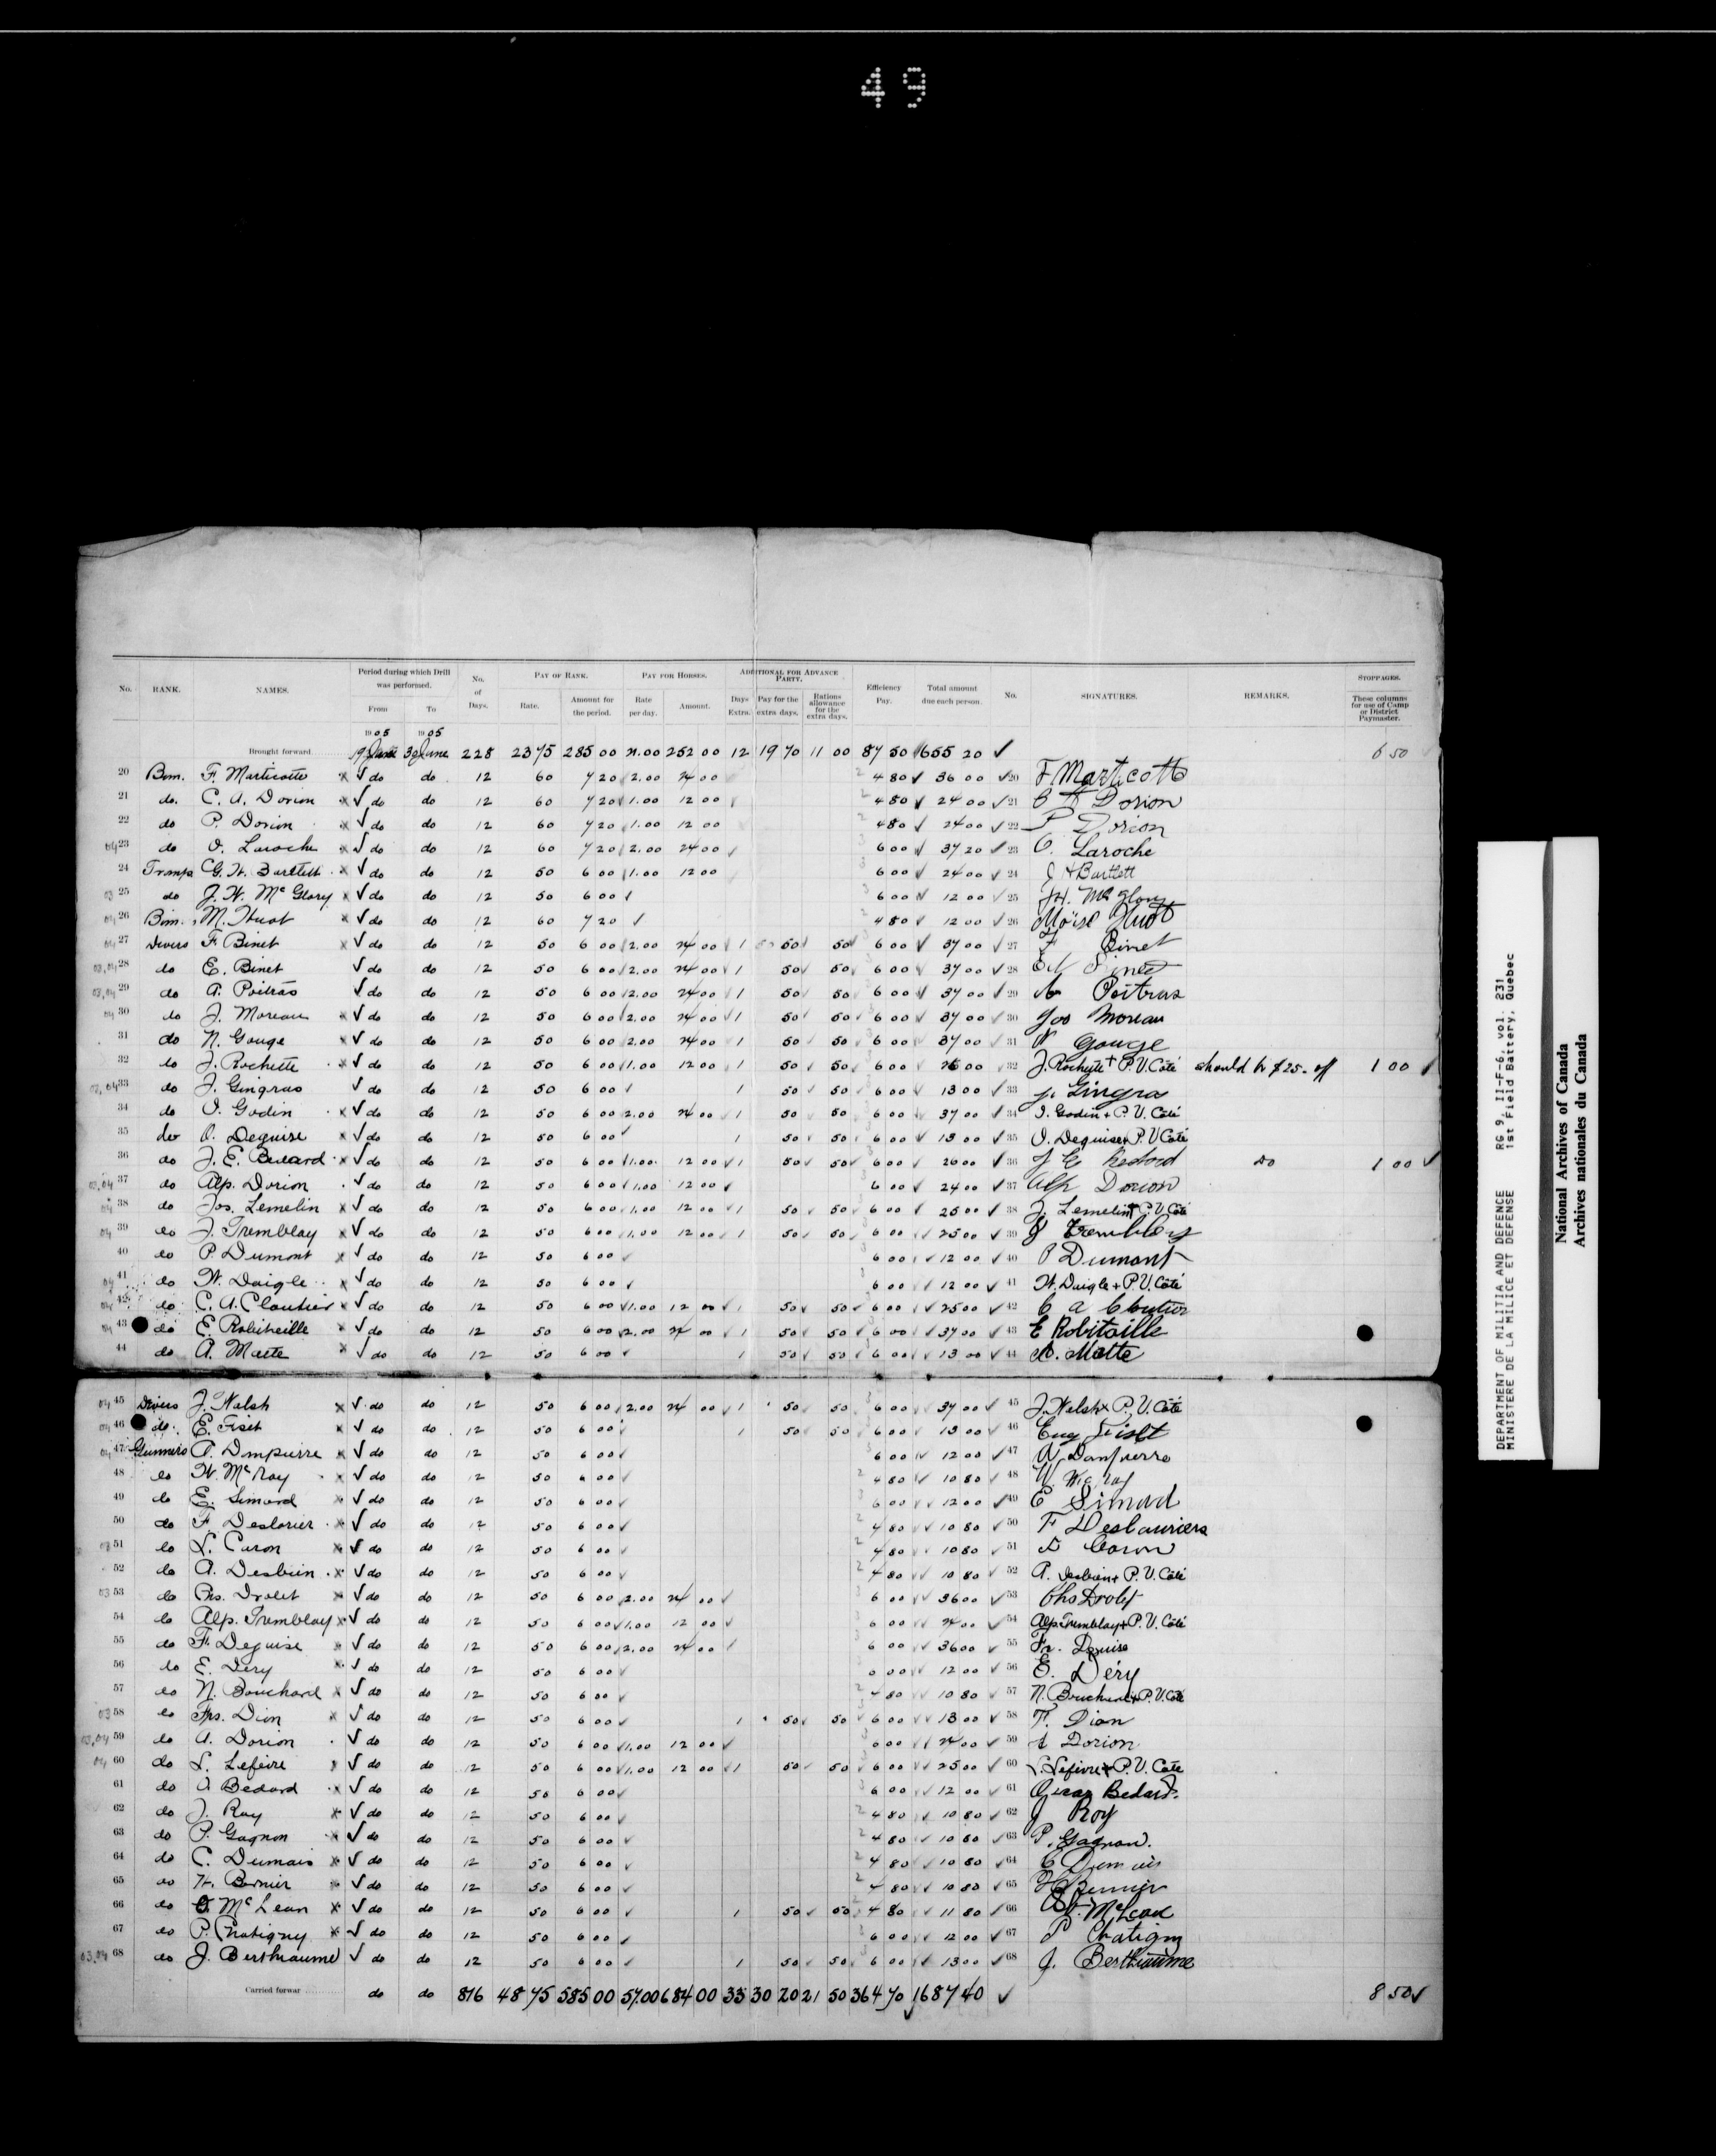 49
No. RANK. NAMES. Period during which Drill was performed. From To No. of Days. PAY OF RANK. Rate. Amount for the period. PAY FOR HORSES. Rate per day. Amount. ADDITIONAL FOR ADVANCE PARTY. Days Extra. Pay for the extra days. Rations allowance for the extra days. Efficiency Pay. Total amount due each person. No. SIGNATURES. REMARKS. STOPPAGES. These columns for use of Camp or District Paymaster.
1905 1905
Brought forward 19 June 30 June 228 23 75 285 00 21.00 252 00 12 19 70 11 00 87 50 655 20 ✓ 6 50
20 Bom. F. Marticotte x ✓ do do 12 60 7 20 2.00 24 00 4 80 36 00 20 F. Marticotte
21 do. C. A. Dorion x ✓ do do 12 60 7 20 1.00 12 00 4 80 24 00 21 C A Dorion
22 do P. Dorion x ✓ do do 12 60 7 20 1.00 12 00 4 80 24 00 22 P Dorion
04 23 do O. Laroche x ✓ do do 12 60 7 20 2.00 24 00 6 00 37 20 23 O. Laroche
24 G. H. Bartlett x ✓ do do 12 50 6 00 1.00 12 00 6 00 24 00 24 Bartlett
03 25 do J. H. McGlory x ✓ do do 12 50 6 00 6 00 12 00 25 J H. McGlory
04 26 Bom. M. Huot x ✓ do do 12 60 7 20 4 80 12 00 26 Moïse Huot
04 27 Drivers F. Binet x ✓ do do 12 50 6 00 2.00 24 00 1 50 50 6 00 37 00 27 F Binet
03,04 28 do E. Binet ✓ do do 12 50 6 00 2.00 24 00 1 50 50 6 00 37 00 28 Binet
03,04 29 do A. Poitras ✓ do do 12 50 6 00 2.00 24 00 1 50 50 6 00 37 00 29 A Poitras
04 30 do J. Moreau x ✓ do do 12 50 6 00 2.00 24 00 1 50 50 6 00 37 00 30 Jos Moreau
31 do N. Gouge x ✓ do do 12 50 6 00 2.00 24 00 1 50 50 6 00 37 00 31 N Gouge
32 do J. Rochette x ✓ do do 12 50 6 00 1.00 12 00 1 50 50 6 00 26 00 32 J. Rochette + P. V. Côté should be $25. 1 00 ✓
33 do J. Gingras ✓ do do 12 50 6 00 1 50 50 6 00 13 00 33 J. Gingras
34 do O. Godin x ✓ do do 12 50 6 00 2.00 24 00 1 50 50 6 00 37 00 34 O. Godin + P. V. Côté
35 do O. Deguise x ✓ do do 12 50 6 00 1 50 50 6 00 13 00 35 O. Deguise + P. V Côté
36 do J. E. Bedard x ✓ do do 12 50 6 00 1.00 12 00 1 50 50 6 00 26 00 36 J E Bedard do 1 00 ✓
03,04 37 do Alp. Dorion ✓ do do 12 50 6 00 1.00 12 00 6 00 24 00 37 Alp Dorion
04 38 do Jos. Lemelin x ✓ do do 12 50 6 00 1.00 12 00 1 50 50 6 00 25 00 38 J. Lemelin + P. V. Côté
04 39 do J. Tremblay x ✓ do do 12 50 6 00 1.00 12 00 1 50 50 6 00 25 00 39 J Tremblay
40 do P. Dumont x ✓ do do 12 50 6 00 6 00 12 00 40 P Dumont
04 41 do W. Daigle x ✓ do do 12 50 6 00 6 00 12 00 41 W. Daigle + P. V. Côté
04 42 do C. A. Cloutier x ✓ do do 12 50 6 00 1.00 12 00 1 50 50 6 00 25 00 42 C A Cloutier
04 43 do E. Robitaille x ✓ do do 12 50 6 00 2.00 24 00 1 50 50 6 00 37 00 43 E Robitaille
44 do A. Matte x ✓ do do 12 50 6 00 1 50 50 6 00 13 00 44 A. Matte
04 45 Drivers J. Walsh x ✓ do do 12 50 6 00 2.00 24 00 1 50 50 6 00 37 00 45 J. Walsh x P. V. Côté
04 46 do. E. Fiset x ✓ do do 12 50 6 00 1 50 50 6 00 13 00 46 Eug Fiset
04 47 Gunners A. Dampierre x ✓ do do 12 50 6 00 6 00 12 00 47 A Dampierre
48 do W. McRay x ✓ do do 12 50 6 00 4 80 10 80 48 W. McRay
49 do E. Simard x ✓ do do 12 50 6 00 6 00 12 00 49 E Simard
50 do F. Deslorier x ✓ do do 12 50 6 00 4 80 10 80 50 F Deslauriers
03 51 do L. Caron x ✓ do do 12 50 6 00 4 80 10 80 51 L Caron
52 do A. Desbien x ✓ do do 12 50 6 00 4 80 10 80 52 A. Desbien + P. V. Côté
03 53 do Chs. Drolet x ✓ do do 12 50 6 00 2.00 24 00 6 00 36 00 53 Chs Drolet
54 do Alp. Tremblay x ✓ do do 12 50 6 00 1.00 12 00 6 00 24 00 54 Alp. Tremblay + P. V. Côté
55 do F. Deguise x ✓ do do 12 50 6 00 2.00 24 00 6 00 36 00 55 Fr. Deguise
56 do E. Dery x ✓ do do 12 50 6 00 6 00 12 00 56 E. Déry
57 do N. Bouchard x ✓ do do 12 50 6 00 4 80 10 80 57 N. Bouchard + P. V. Côté
03 58 do Frs. Dion x ✓ do do 12 50 6 00 1 50 50 6 00 13 00 58 F. Dion
03,04 59 do A. Dorion ✓ do do 12 50 6 00 1.00 12 00 6 00 24 00 59 A Dorion
04 60 do L. Lefeivre x ✓ do do 12 50 6 00 1.00 12 00 1 50 50 6 00 25 00 60 L. Lefeivre + P. V. Côté
61 do O Bedard x ✓ do do 12 50 6 00 6 00 12 00 61 Oscar Bedard.
62 do J. Roy x ✓ do do 12 50 6 00 4 80 10 80 62 J Roy
63 do P. Gagnon x ✓ do do 12 50 6 00 4 80 10 80 63 P. Gagnon.
64 do C. Dumais x ✓ do do 12 50 6 00 4 80 10 80 64 C Dumais
65 do H. Bernier x ✓ do do 12 50 6 00 4 80 10 80 65 H Bernier
66 do O. McLean x ✓ do do 12 50 6 00 1 50 50 4 80 11 80 66 McLean
67 do P. Chatigny x ✓ do do 12 50 6 00 6 00 12 00 67 P Chatigny
03,04 68 do J. Berthiaume ✓ do do 12 50 6 00 1 50 50 6 00 13 00 68 J. Berthiaume
Carried forwar do do 816 48 75 585 00 57.00 684 00 33 30 20 21 50 364 70 1687 40 ✓ 8 50 ✓
DEPARTMENT OF MILITIA AND DEFENCE RG 9, II-F-6, vol. 231
MINISTERE DE LA MILICE ET DEFENSE 1st Field Battery, Quebec
National Archives of Canada
Archives nationales du Canada